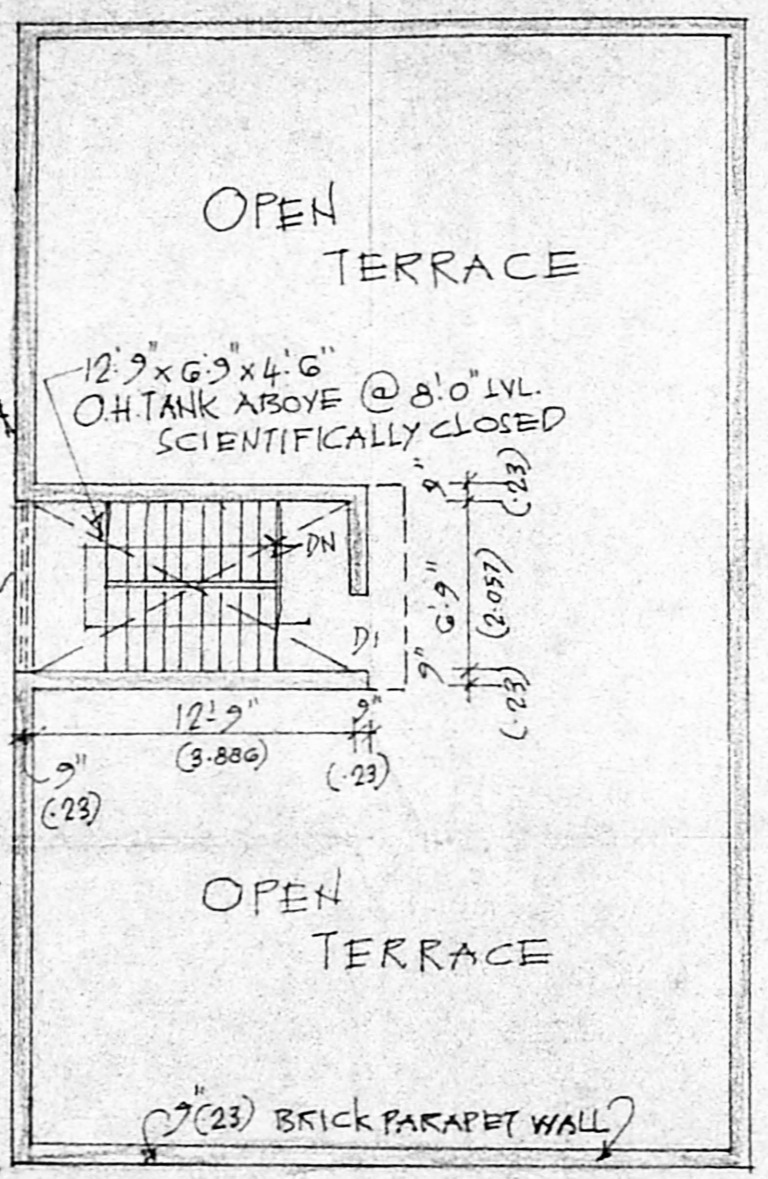 OPEN
TERRACE
12'.9"x6'.9"x4'.6"
O.H.TANK ABOVE @ 8'.0" LVL.
SCIENTIFICALLY CLOSED
9"
(.23)
DN
6'.9"
(2.057)
D1
9"
(.23)
12'-9"
(3.886)
9"
(.23)
9"
(.23)
OPEN
TERRACE
9"(23) BRICK PARAPET WALL